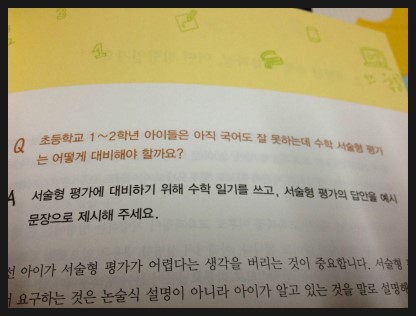 Q 초등학교 1~2학년 아이들은 아직 국어도 잘 못하는데 수학 서술형 평가
는 어떻게 대비해야 할까요?
A 서술형 평가에 대비하기 위해 수학 일기를 쓰고, 서술형 평가의 답안을 예시
문장으로 제시해 주세요.
선 아이가 서술형 평가가 어렵다는 생각을 버리는 것이 중요합니다. 서술형
요구하는 것은 논술식 설명이 아니라 아이가 알고 있는 것을 말로 설명해